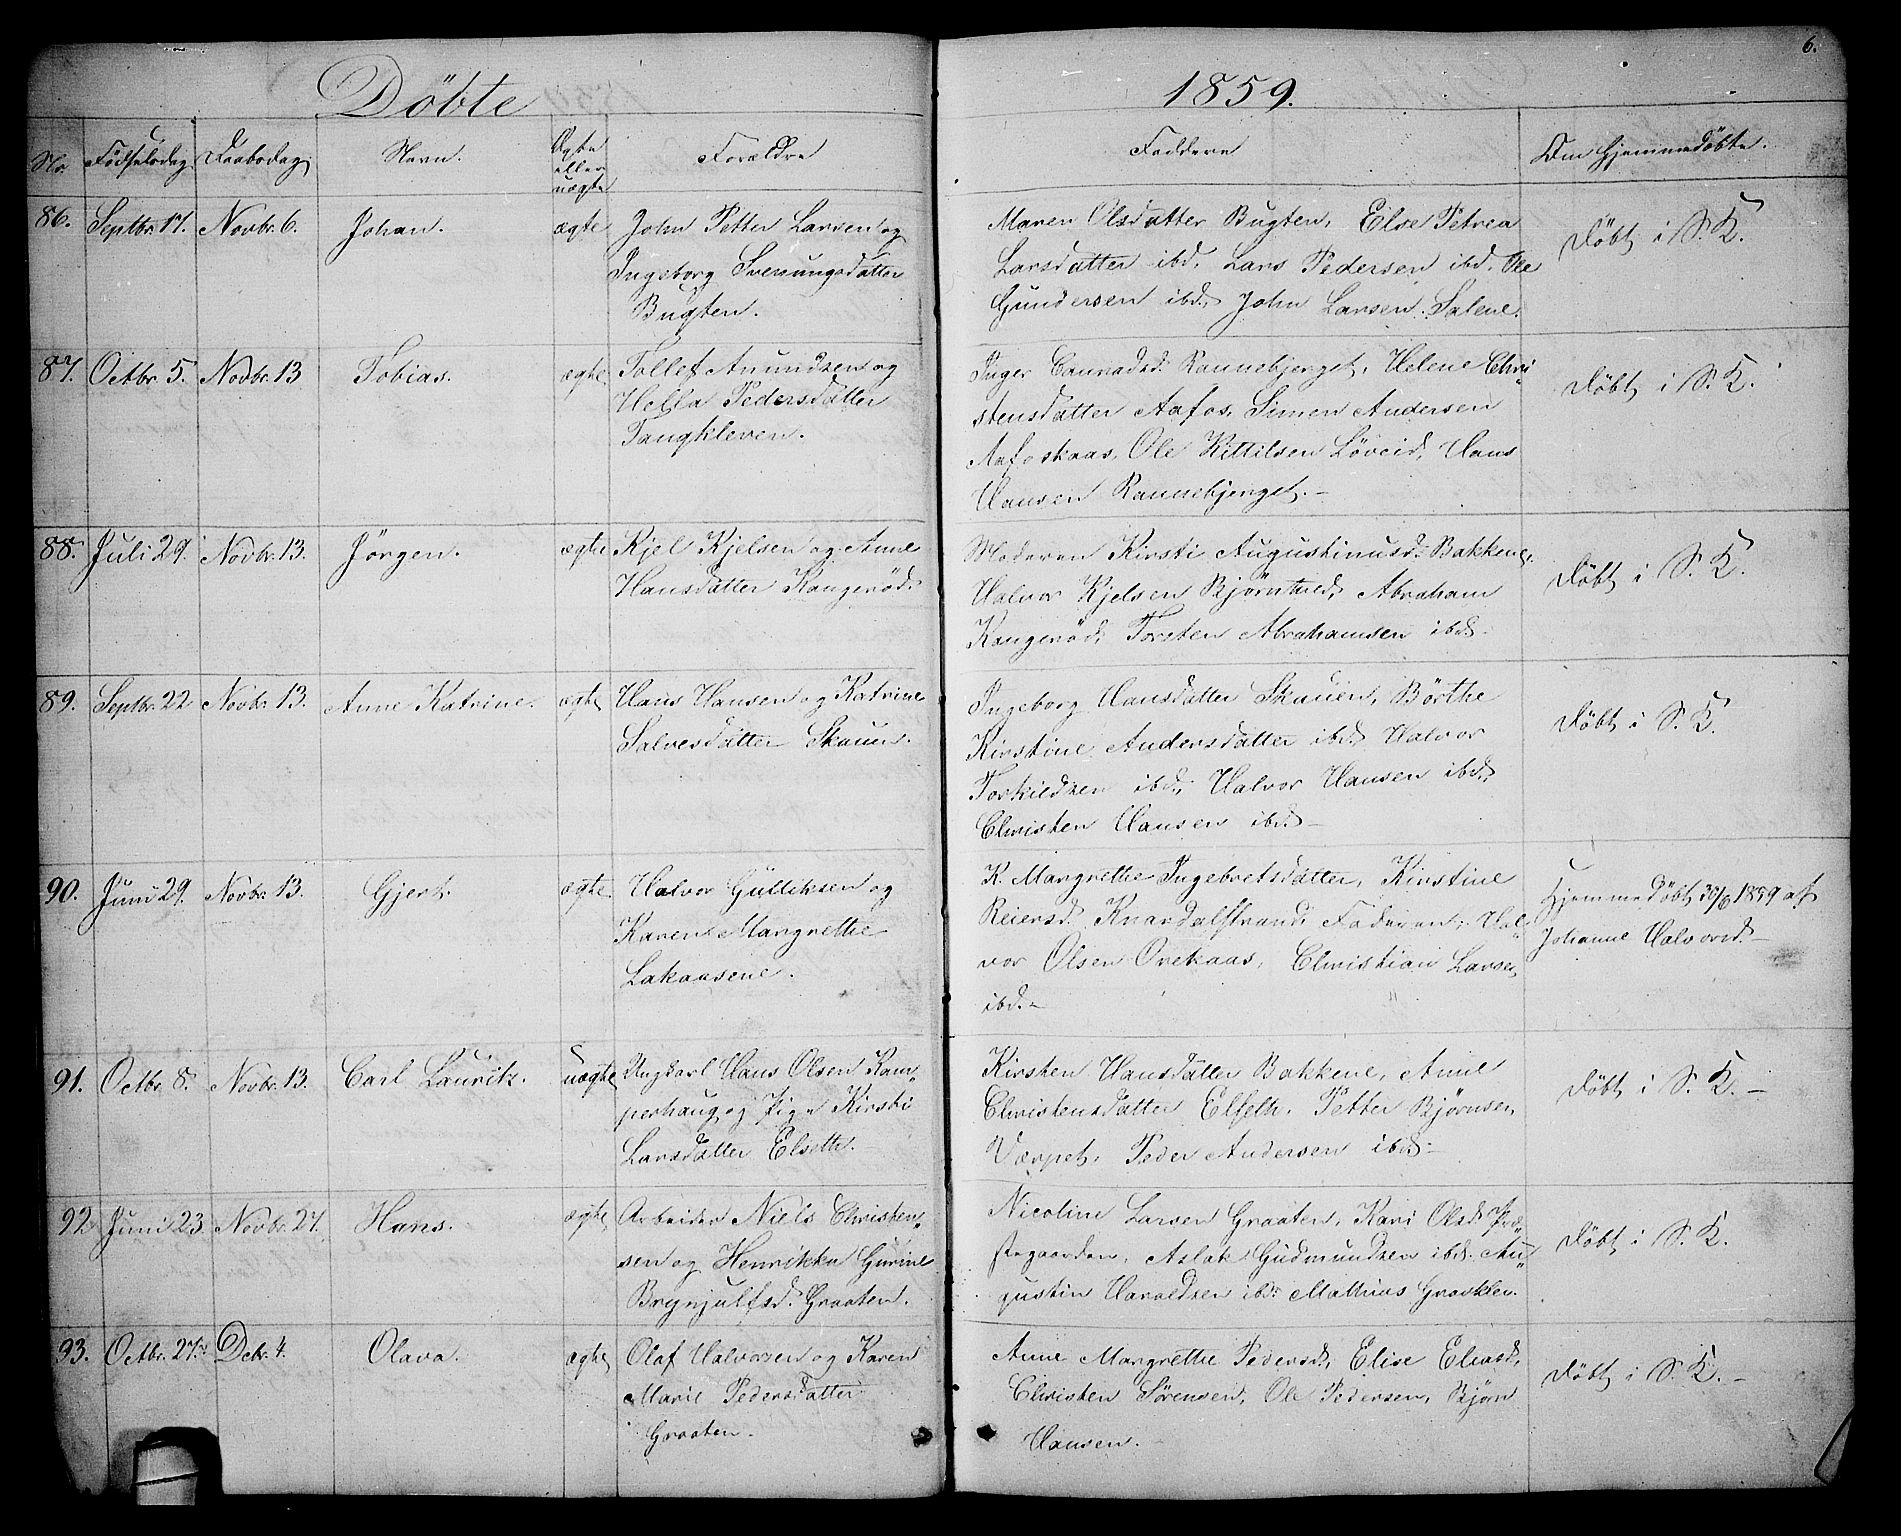 6.
Döbte
1859.
Nr. Födselsdag Daabsdag Navn. Ægte eller uægte Forældre Faddere Om Hjemmedöbte.
86. Septbr. 17. Novbr. 6. Johan. ægte
John Petter Larsen og
Ingeborg Sversungsdatter
Bugten.
Maren Olsdatter Bugten, Else Petrea
Larsdatter ibd. Lars Pedersen ibd. Ole
Gundersen ibd., John Larsen. Salene.
Döbt i S. K.
87. Octbr. 5. Novbr. 13 Tobias. ægte
Tollef Amundsen og
Hella Pedersdatter
Tangkleven.
Inger Conradsd. Rannebjerget, Helene Chri„
stensdatter Aafos, Simen Andersen
Aafoskaas, Ole Kittilsen Löveid, Hans
Hansen Rannebjerget.-
Döbt i S. K.
88. Juli 29. Novbr. 13. Jörgen. ægte
Kjel Kjelsen og Anne
Hansdatter Kongeröd.
Moderen Kirsti Augustinusd. Bakkene,
Halvor Kjelsen Björntvedt, Abraham
Kongeröd, Torsten Abrahamsen ibd.
Döbt i S. K.
89. Septbr. 22 Novbr. 13. Anne Katrine. ægte
Hans Hansen og Katrine
Salvesdatter Skauen.
Ingeborg Hansdatter Skauen, Börthe
Kirstine Andersdatter ibd. Halvor
Torkildsen ibd., Halvor Hansen ibd.,
Christen Hansen ibd.-
Döbt i S. K.
90. Juni 29. Novbr. 13. Gjert. ægte
Halvor Gulliksen og
Karen Margrethe
Lakaasene.
K. Margrethe Ingebretsdatter, Kirstine
Reiersd. Knardalstrand, Faderen, Hal„
vor Olsen Ovekaas, Christian Larsen
ibd.-
Hjemmedöbt 30/6 1859 af
Johanne Halvorsd.-
91. Octbr. 8. Novbr. 13. Carl Laurits. uægte
Ungkarl Hans Olsen Kam„
perhaug og Pige Kirsti
Larsdatter Elseth.
Kirsten Hansdatter Bakkene, Anne
Christensdatter Elseth, Petter Björnsen
Værpet, Peder Andersen ibd.-
Döbt i S. K.-
92 Juni 23. Novbr. 27. Hans. ægte
Arbeider Niels Christen„
sen og Henrikka Gurine
Brynjulfsd. Graaten.
Nicoline Larsen Graaten, Kari Olsd. Præ„
stegaarden, Aslak Gudmundsen ibd. Au„
gustin Haraldsen ibd. Mathias Grasklev.
Döbt i S. K.
93. Octbr. 27. Dcbr. 4. Olava. ægte
Olaf Halvorsen og Karen
Marie Pedersdatter
Graaten.
Anne Margrethe Pedersd., Elise Eliasd.,
Christen Sörensen, Ole Pedersen, Björn
Hansen.-
Döbt i S. K.-